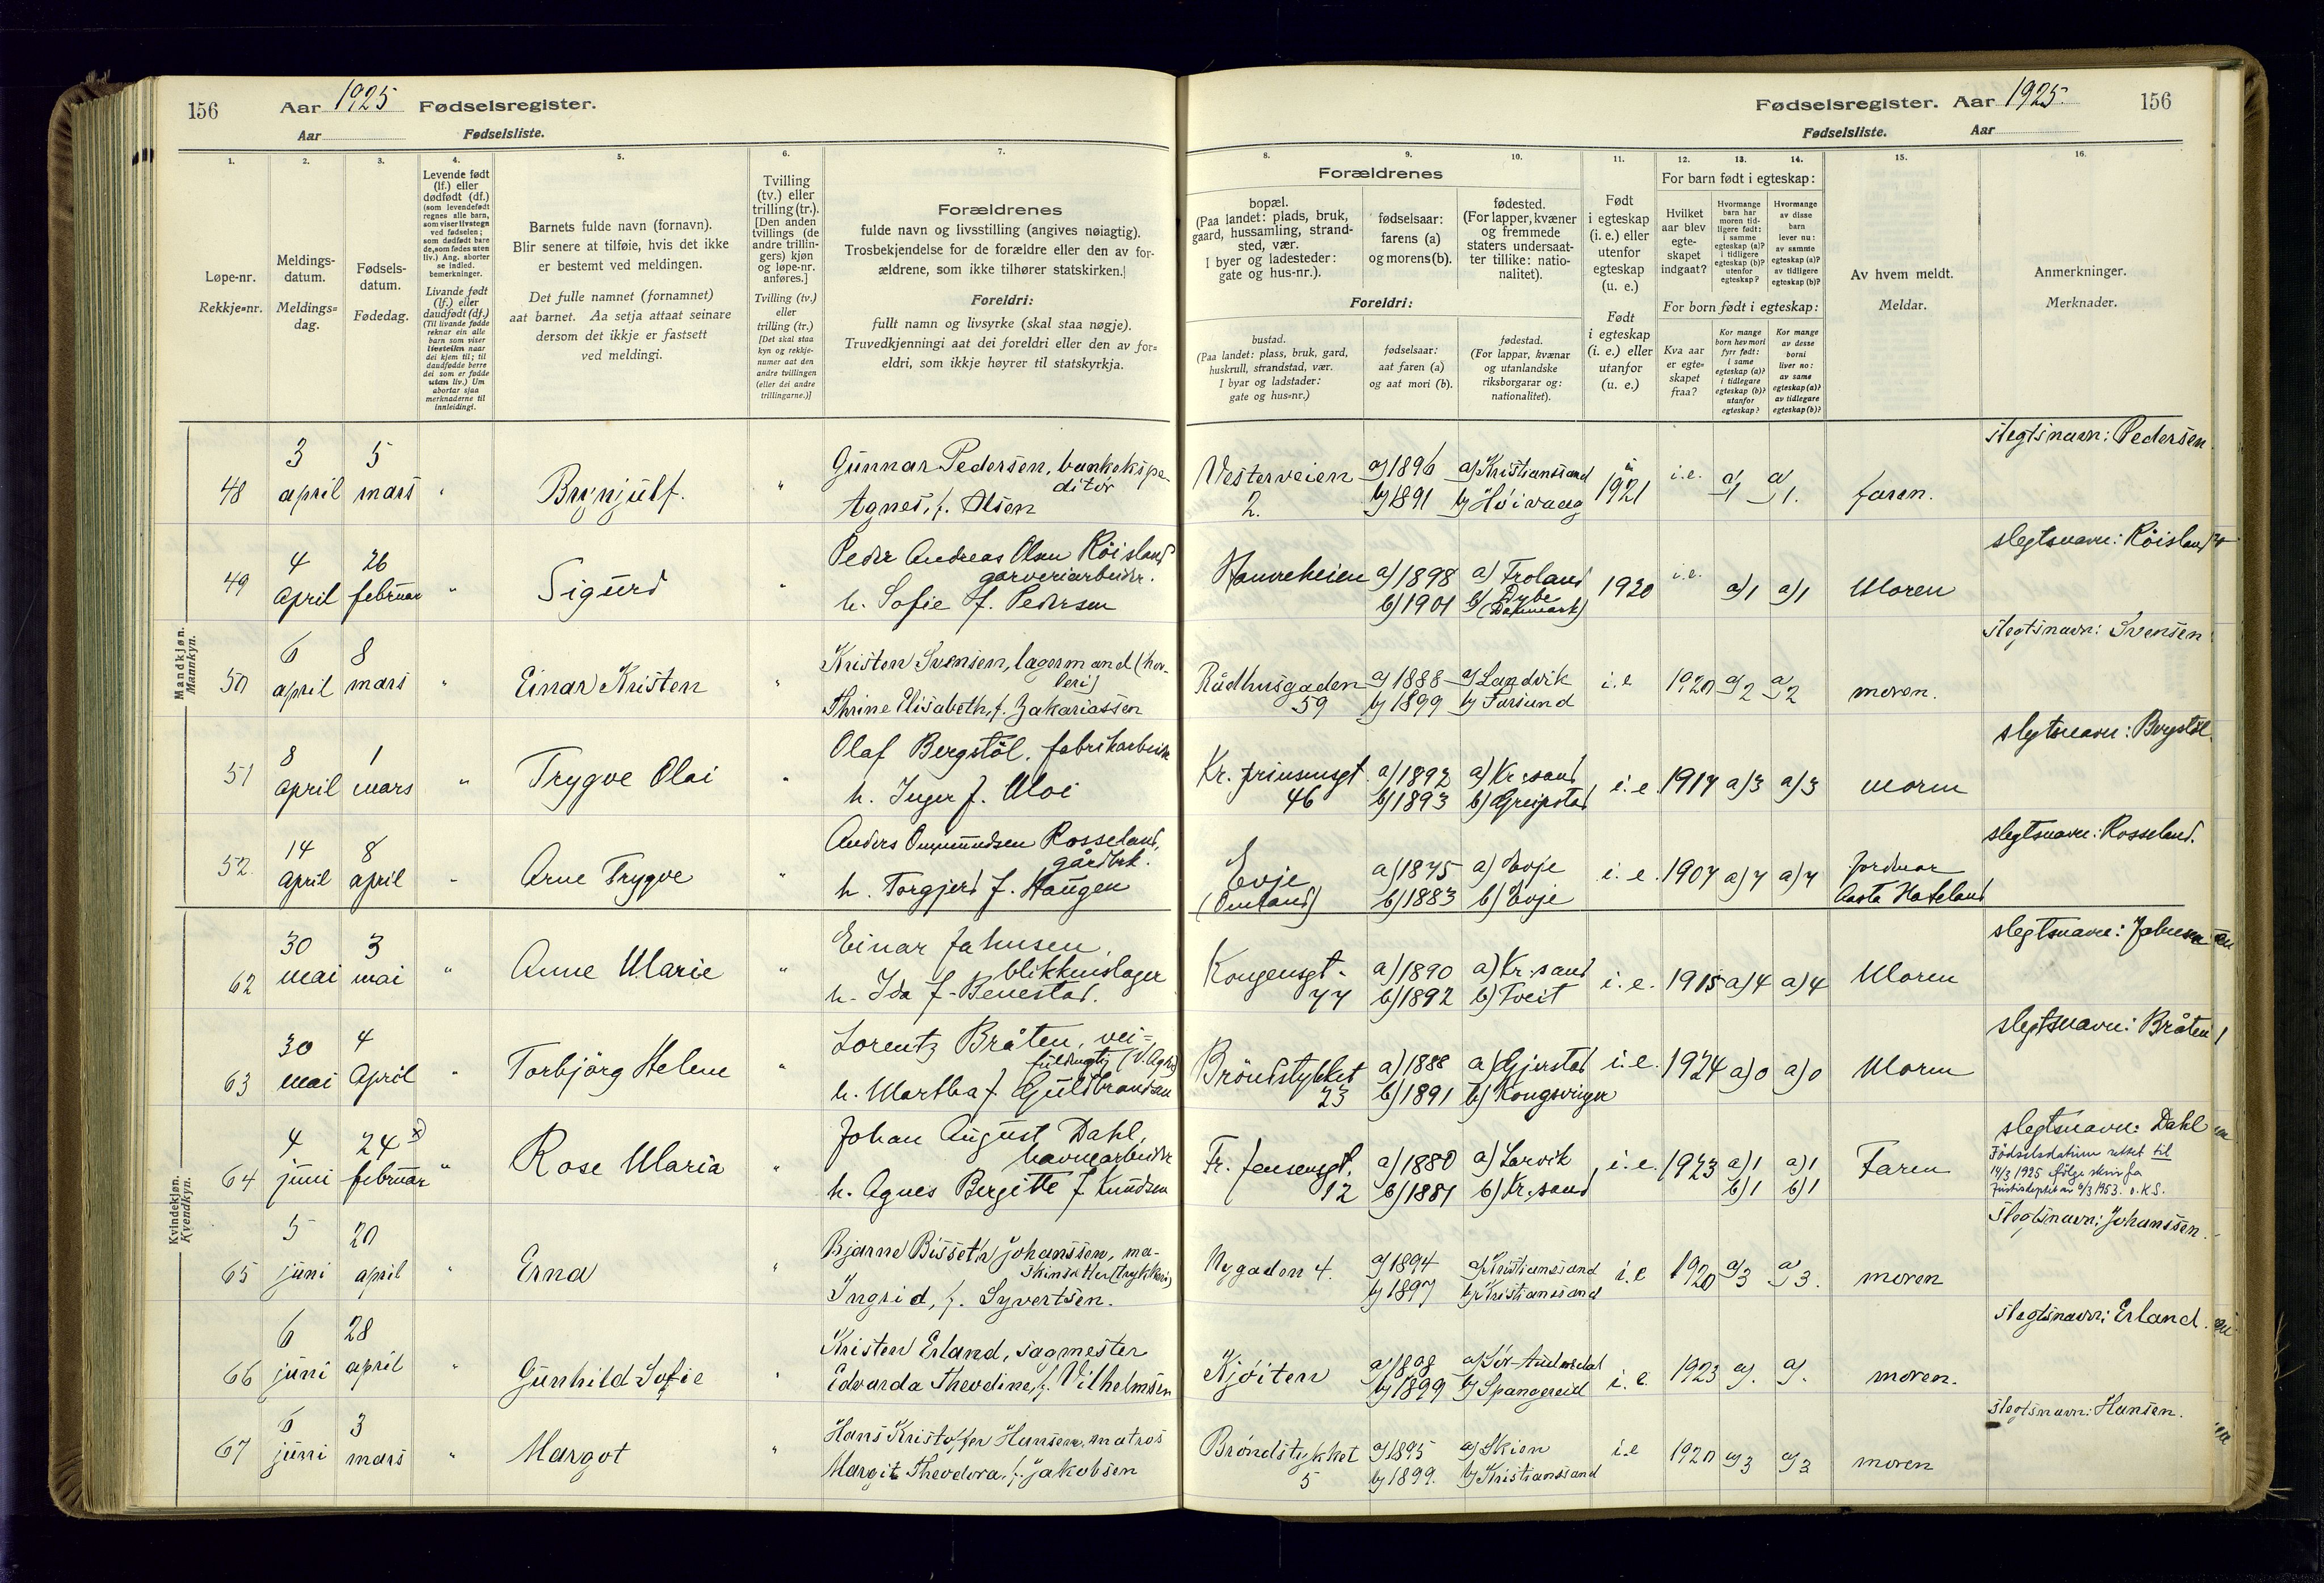 156 Aar 1925 Fødselsregister.
Aar Fødselsliste.
Fødselsregister. Aar 1925. 156
Fødselsliste. Aar
1. 2. 3. 4. 5. 6. 7.
Løpe-nr.
Rekkje=nr.
Meldings-
datum.
Meldings=
dag.
Fødsels-
datum.
Fødedag.
Levende født
(lf.) eller
dødfødt (df.)
(som levendefødt
regnes alle barn,
som viser livstegn
ved fødselen;
som dødfødt bare
de, som fødes uten
liv.) Ang. aborter
se indled.
bemerkninger.
Livande født
(lf.) eller
daudfødt (df.)
(Til livande fødde
reknar ein alle
barn som viser
livsteikn naar
dei kjem til; til
daudfødde berre
dei som er fødde
utan liv.) Um
abortar sjaa
merknaderne til
innleidingi.
Barnets fulde navn (fornavn).
Blir senere at tilføie, hvis det ikke
er bestemt ved meldingen.
Det fulle namnet (fornamnet)
aat barnet. Aa setja attaat seinare
dersom det ikkje er fastsett
ved meldingi.
Tvilling
(tv.) eller
trilling (tr.).
[Den anden
tvillings (de
andre trillin-
gers) kjøn
og løpe-nr.
anføres.]
Tvilling (tv.)
eller
trilling (tr.)
[Det skal staa
kyn og rekkje-
numer aat den
andre tvillingen
(eller dei andre
trillingarne.)]
Forældrenes
fulde navn og livsstilling (angives nøiagtig).
Trosbekjendelse for de forældre eller den av for-
ældrene, som ikke tilhører statskirken.
Foreldri:
fullt namn og livsyrke (skal staa nøgje).
Truvedkjenningi aat dei foreldri eller den av for=
eldri, som ikkje høyrer til statskyrkja.
8. 9. 10. 11. 12. 13. 14. 15. 16.
Forældrenes
bopæl.
(Paa landet: plads, bruk,
gaard, hussamling, strand-
sted, vær.
I byer og ladesteder:
gate og hus-nr.).
fødselsaar:
farens (a)
og morens (b).
fødested.
(For lapper, kvæner
og fremmede
staters undersaat-
ter tillike: natio-
nalitet).
Foreldri:
bustad.
(Paa landet: plass, bruk, gard,
huskrull, strandstad, vær.
I byar og ladstader:
gate og hus=nr.)
fødselsaar:
aat faren (a)
og aat mori (b).
fødestad.
(For lappar, kvænar
og utanlandske
riksborgarar og:
nationalitet).
Født
i egteskap
(i. e.) eller
utenfor
egteskap
(u. e.)
Født
i egteskap
(i. e.) eller
utanfor
(u. e.)
For barn født i egteskap:
Hvilket
aar blev
egte-
skapet
indgaat?
Hvormange
barn har
moren tid-
ligere født:
i samme
egteskap (a)?
i tidligere
egteskap (b)?
utenfor
egteskap?
Hvormange
av disse
barn
lever nu:
av samme
egteskap (a)?
av tidligere
egteskap (b)?
For born født i egteskap:
Kva aar
er egte=
skapet
fraa?
Kor mange
born hev mori
fyrr født:
i same
egteskap (a)?
i tidlegare
egteskap (b)?
utanfor
egteskap?
Kor mange
av desse
borni
liver no:
av same
egteskap (a)?
av tidlegare
egteskap (b)?
Av hvem meldt.
Meldar.
Anmerkninger.
Merknader.
Mandkjøn.
Mannkyn.
48 3 april 5 mars " Brynjulf. " Gunnar Pedersen, bankekspe-
ditør
Agnes, f. Olsen
Vesterveien 2. a) 1896 b) 1891 a) Kristianssand b) Høivaag 1921 i.e. a) 1 a) 1. faren. slegtsnavn: Pedersen.
49 4 april 26 februar " Sigurd " Peder Andreas Olsen Röisland
garveriarbeider.
h. Sofie f. Pedersen
Hanneheien a) 1898 b) 1901 a) Froland b) Dybe (Danmark) 1920 i.e. a) 1 a) 1 Moren slegtsnavn: Röisland
50 6 april 8 mars " Einar Kristen " Kristen Svensen, lagermand
Thrine Elisabeth, f. Zakariassen
Rådhusgaden 59 a) 1888 b) 1899 a) Landvik b) Farsund i.e 1920 a) 2 a) 2 moren. slegtsnavn: Svensen
51 8 april 1 mars " Trygve Olai " Olaf Bergstöl. fabrikarbeider
h. Inger f. Moi
Kr. prinsensgt. 46 a) 1892 b) 1893 a) Kr.sand b) Greipstad i.e. 1917 a) 3 a) 3 Moren slegtsnavn: Bergstöl.
52. 14 april 8 april " Arne Trygve " Anders Ommundsen Rosseland,
gårdbr.
h. Torgjerd f. Haugen
Evje a) 1875 b) 1883 a) Evje b) Evje i.e. 1907 a) 7 a) 7 Jordmor
Aasta Hateland slegtsnavn: Rosseland.
Kvindekjøn.
Kvendkyn.
62 30 mai 3 mai " Anne Marie " Einar Jahnsen,
blikkenslager
h. Ida f. Benestad.
Kongensgt. 77 a) 1890 b) 1892 a) Kr.sand b) Tveit i.e. 1915 a) 4 a) 4 Moren slegtsnavn: Jahnsen
63 30 mai 4 April " Torbjörg Helene " Lorentz Bråten, vei=
fuldmgtig (V. Agder)
h. Martha f. Guldbrandsen
Bröndstykket 23 a) 1888 b) 1891 a) Gjerstad b) Kongsvinger i.e. 1924 a) 0 a) 0 Moren slegtsnavn: Bråten
64 4 juni 24 x) februar " Rose Maria " Johan August Dahl,
havnearbeider
h. Agnes Bergitte f. Knudsen
Fr. Jensensgt. 12 a) 1880 b) 1881 a) Larvik b) Kr.sand i.e. 1923 a) 1 b) 1 a) 1 b) 1 Faren slegtsnavn: Dahl
Födselsdatum rettet til
14/3 1925 ifølge skriv fra
Justisdeptet av 6/3 1953. O.K.S.
65 5 juni 20 april " Erna " Bjarne Bisseth Johanssen, ma-
skinsetter (trykkeri)
Ingrid, f. Syvertsen.
Nygaden 4. a) 1894 b) 1897 a) Kristianssand b) Kristianssand i.e 1920 a) 3 a) 3. moren slegtsnavn: Johanssen.
66 6 juni 28 april " Gunhild Sofie " Kristen Erland, sagmester
Edvarda Theodine, f. Vilhelmsen
Kjøiten a) 1898 b) 1899 a) Sør-Audnedal b) Spangereid i.e. 1923 a). a). moren. slegtsnavn: Erland.
67 6 juni 3 mars " Margot " Hans Kristoffer Hansen, matros
Margit Theodora, f. Jakobsen
Brøndstykket 5 a) 1895 b) 1899. a) Skien b) Kristianssand i.e 1920 a) 3 a) 3 moren slegtsnavn: Hansen.